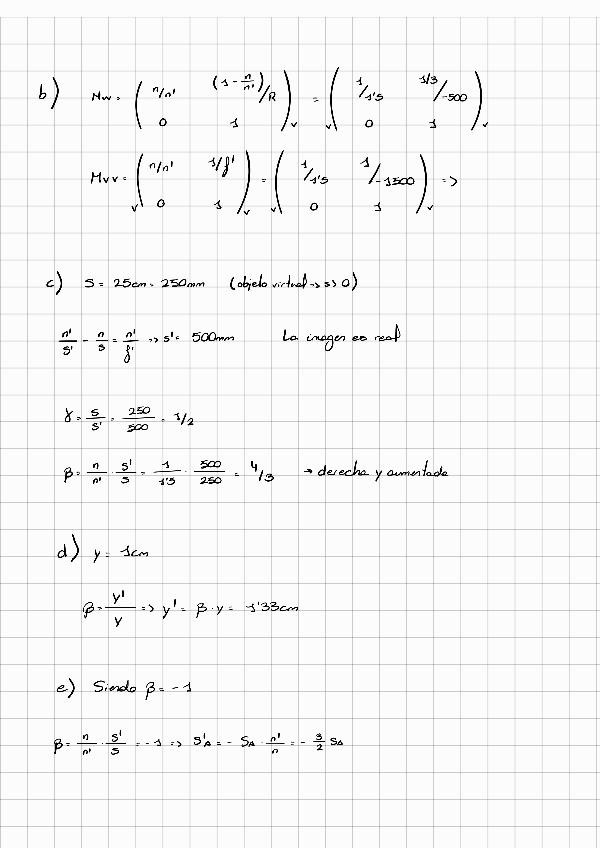 b) Mvv = ( n/n' (1 - n/n')/R ; 0 1 )v = v( 1/1'5 1/3/-500 ; 0 1 )v
Mvv = v( n/n' 1/f' ; 0 1 )v = ( 1/1'5 1/-1500 ; 0 1 )v =>
c) S = 25cm = 250mm (objeto virtual -> s > 0)
n'/s' - n/s = n'/f' => s' = 500mm La imagen es real
γ = s/s' = 250/500 = 1/2
β = n/n' · s'/s = 1/1'5 · 500/250 = 4/3 → derecha y aumentada
d) y = 1cm
β = y'/y => y' = β · y = 1'33cm
e) Siendo β = -1
β = n/n' · s'/s = -1 => s'A = - SA · n'/n = - 3/2 SA